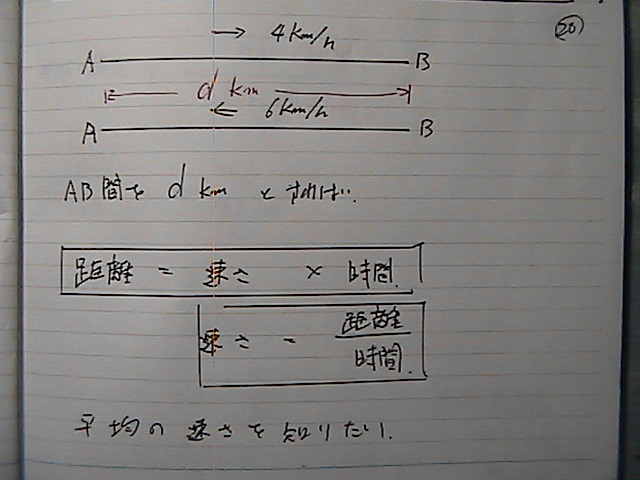 20
→ 4km/h
A B
d km
← 6km/h
A B
AB間を d km とすれば.
距離 = 速さ × 時間.
速さ = 距離/時間.
平均の速さを知りたい.